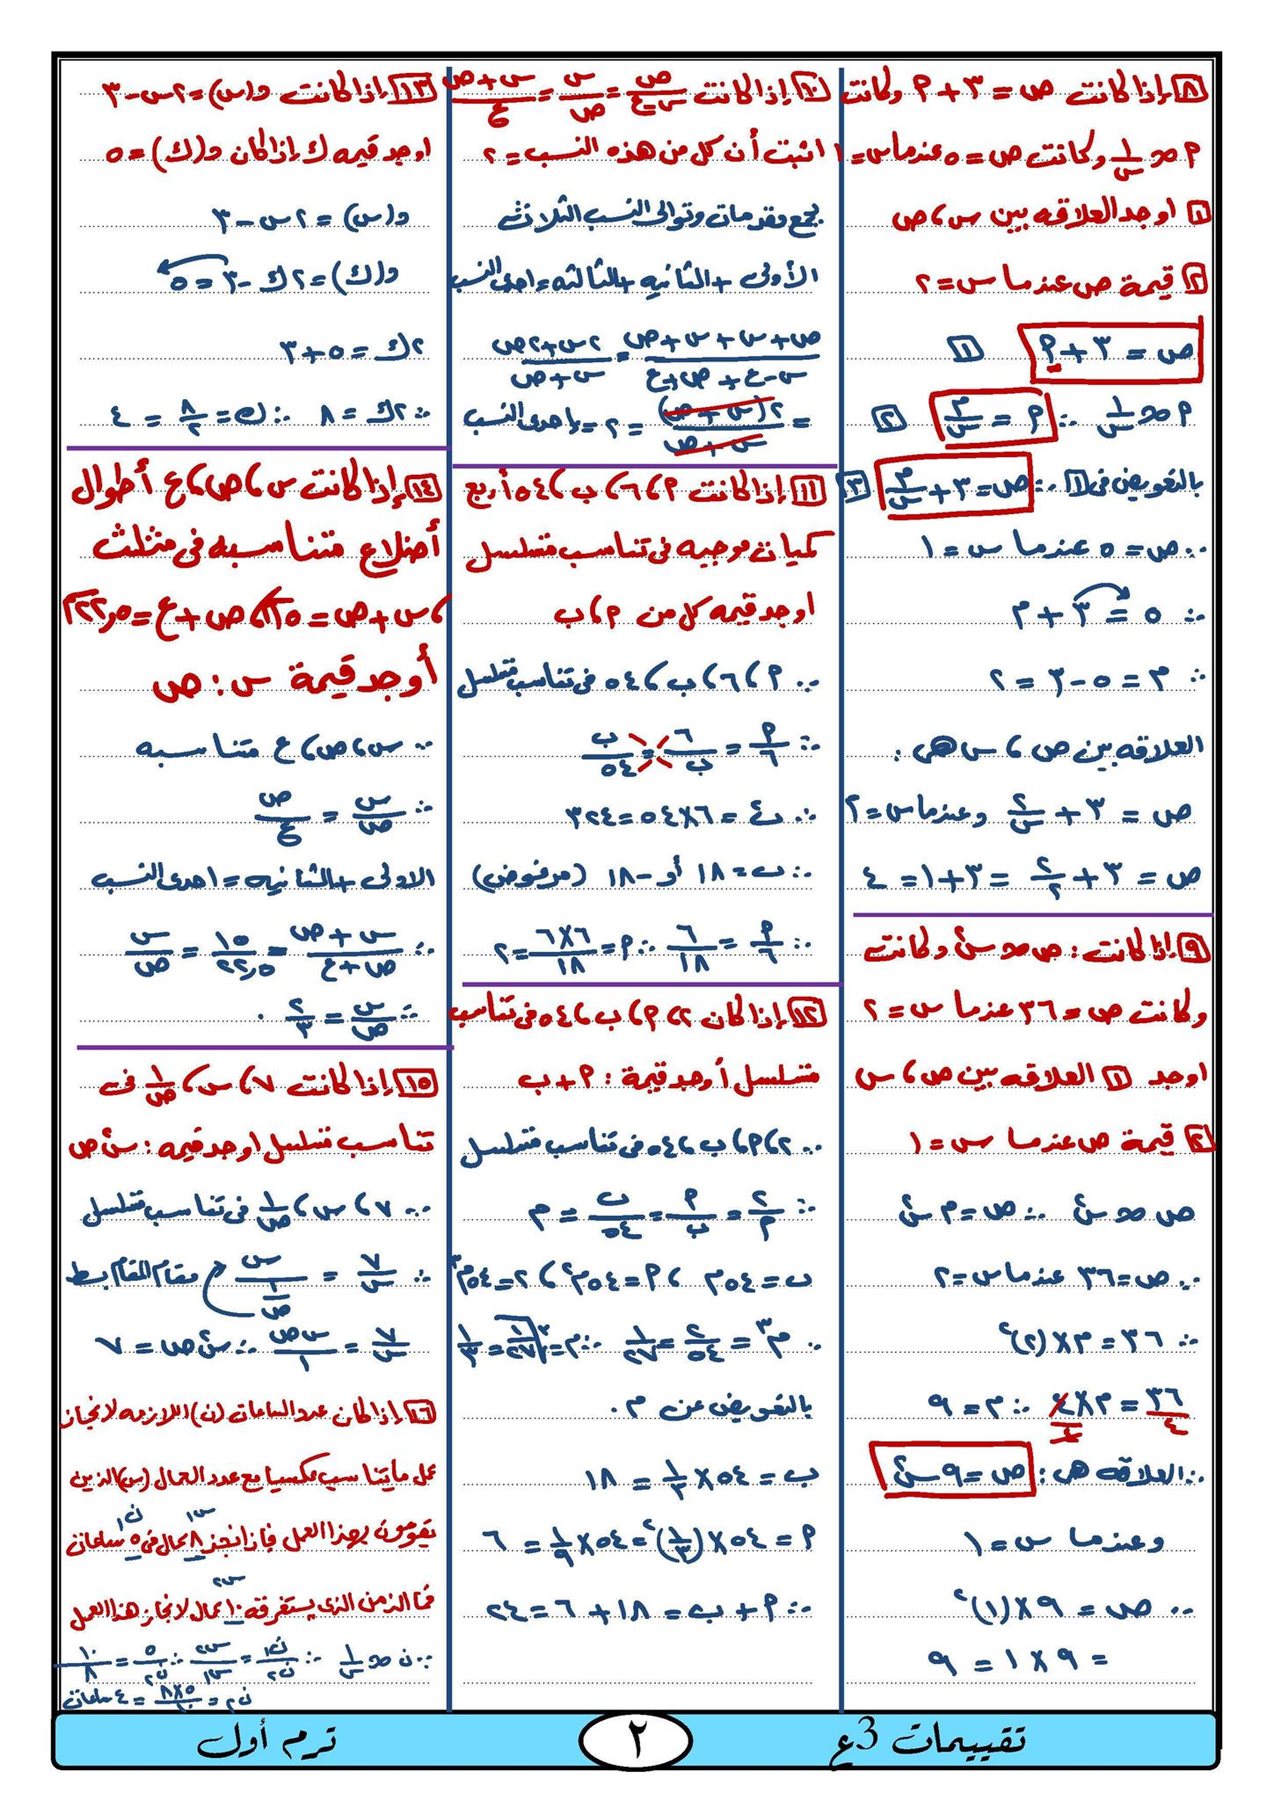 ٨ إذا كانت ص = ٣ + م وكانت
م ∝ ١/س وكانت ص = ٥ عندما س = ١
١ اوجد العلاقه بين س ، ص
٢ قيمة ص عندما س = ٢
ص = ٣ + م ١
م ∝ ١/س ∴ م = م/س ٢
بالتعويض فى ١ ∴ ص = ٣ + م/س ٣
∵ ص = ٥ عندما س = ١
∴ ٥ = ٣ + م
∴ م = ٥ - ٣ = ٢
العلاقه بين ص ، س هى :
ص = ٣ + ٢/س وعندما س = ٢
ص = ٣ + ٢/٢ = ٣ + ١ = ٤
٩ إذا كانت : ص ∝ س٢ وكانت
وكانت ص = ٣٦ عندما س = ٢
اوجد ١ العلاقه بين ص ، س
٢ قيمة ص عندما س = ١
ص ∝ س٢ ∴ ص = م س٢
∵ ص = ٣٦ عندما س = ٢
∴ ٣٦ = م × (٢)٢
٣٦/٤ = م × ٤/٤ ∴ م = ٩
∴ العلاقه هى : ص = ٩ س٢
وعندما س = ١
∵ ص = ٩ × (١)٢
= ٩ × ١ = ٩
١٠ إذا كانت ص/س-ع = س/ص = س+ص/ع
اثبت أن كل من هذه النسب = ٢
بجمع مقدمات وتوالى النسب الثلاث
الأولى + الثانيه + الثالثه = احدى النسب
ص + س + س + ص/س - ع + ص + ع = ٢س + ٢ص/س + ص
= ٢(س + ص)/س + ص = ٢ = إحدى النسب
١١ إذا كانت م ، ٦ ، ب ، ٥٤ أربع
كميات موجبه فى تناسب متسلسل
اوجد قيمه كل من م ، ب
∵ م ، ٦ ، ب ، ٥٤ فى تناسب متسلسل
∴ م/٦ = ٦/ب = ب/٥٤
∴ ب٢ = ٦ × ٥٤ = ٣٢٤
∴ ب = ١٨ أو - ١٨ (مرفوض)
∴ م/٦ = ٦/١٨ ∴ م = ٦×٦/١٨ = ٢
١٢ إذا كان ٢ ، م ، ب ، ٥٤ فى تناسب
متسلسل أوجد قيمة : م + ب
∵ ٢ ، م ، ب ، ٥٤ فى تناسب متسلسل
∴ ٢/م = م/ب = ب/٥٤ = م
ب = ٥٤م ، م = ٥٤م٢ ، ٢ = ٥٤م٣
∴ م٣ = ٢/٥٤ = ١/٢٧ ∴ م = ٣√١/٢٧ = ١/٣
بالتعويض عن م .
ب = ٥٤ × ١/٣ = ١٨
م = ٥٤ × (١/٣)٢ = ٥٤ × ١/٩ = ٦
∴ م + ب = ١٨ + ٦ = ٢٤
١٣ إذا كانت د(س) = ٢س - ٣
اوجد قيمه ك إذا كان د(ك) = ٥
د(س) = ٢س - ٣
د(ك) = ٢ك - ٣ = ٥
٢ك = ٥ + ٣
∴ ٢ك = ٨ ∴ ك = ٨/٢ = ٤
١٤ إذا كانت س ، ص ، ع أطوال
أضلاع متناسبه فى مثلث
، س + ص = ١٥ ، ص + ع = ٢٢,٥
أوجد قيمة س : ص
∵ س ، ص ، ع متناسبه
∴ س/ص = ص/ع
الاولى + الثانيه = احدى النسب
∴ س + ص/ص + ع = ١٥/٢٢,٥ = س/ص
∴ س/ص = ٢/٣ .
١٥ إذا كانت ٧ ، س ، ١/ص فى
تناسب متسلسل اوجد قيمه : س٢ ص
∵ ٧ ، س ، ١/ص فى تناسب متسلسل
∴ ٧/س = س/١/ص مقام المقام بسط
٧/س = س ص/١ ∴ س٢ ص = ٧
١٦ إذا كان عدد الساعات (ن) اللازمه لانجاز
عمل ما يتناسب عكسيا مع عدد العمال (س) الذين
يقومون بهذا العمل فإذا انجز ٨ عمال فى ٥ ساعات
فما الزمن الذى يستغرقه ١٠ عمال لانجاز هذا العمل
∵ ن ∝ ١/س ∴ ن١/ن٢ = س٢/س١ ∴ ٥/ن٢ = ١٠/٨
ن٢ = ٥×٨/١٠ = ٤ ساعات
تقييمات 3ع
٢
ترم أول